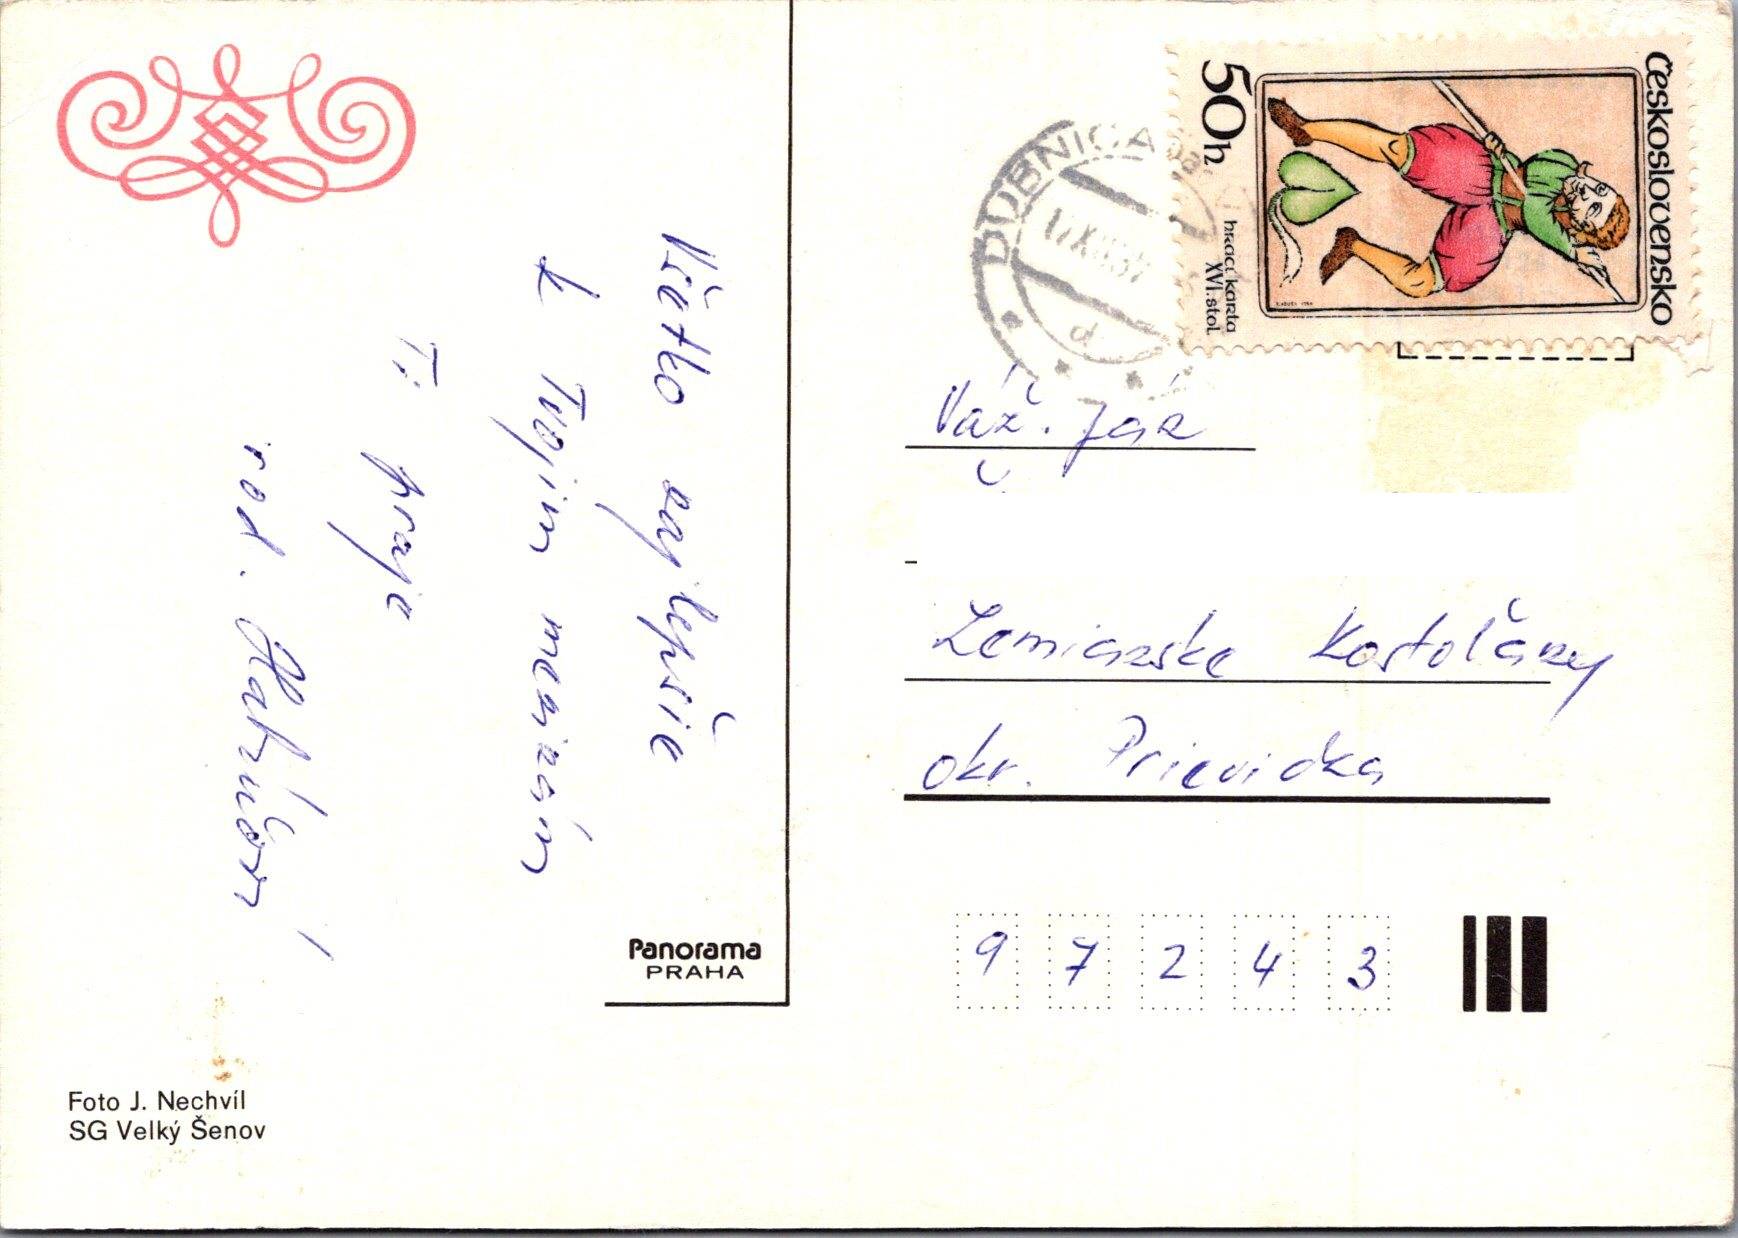 Všetko najlepšie
k Tvojim meninám
Ti praje
rod.
Panorama
PRAHA
Foto J. Nechvíl
SG Velký Šenov
Československo
50h
hrací karta
XVI. stol.
DUBNICA
d
Váž. pán
Zemianske Kostoľany
okr. Prievidza
9 7 2 4 3